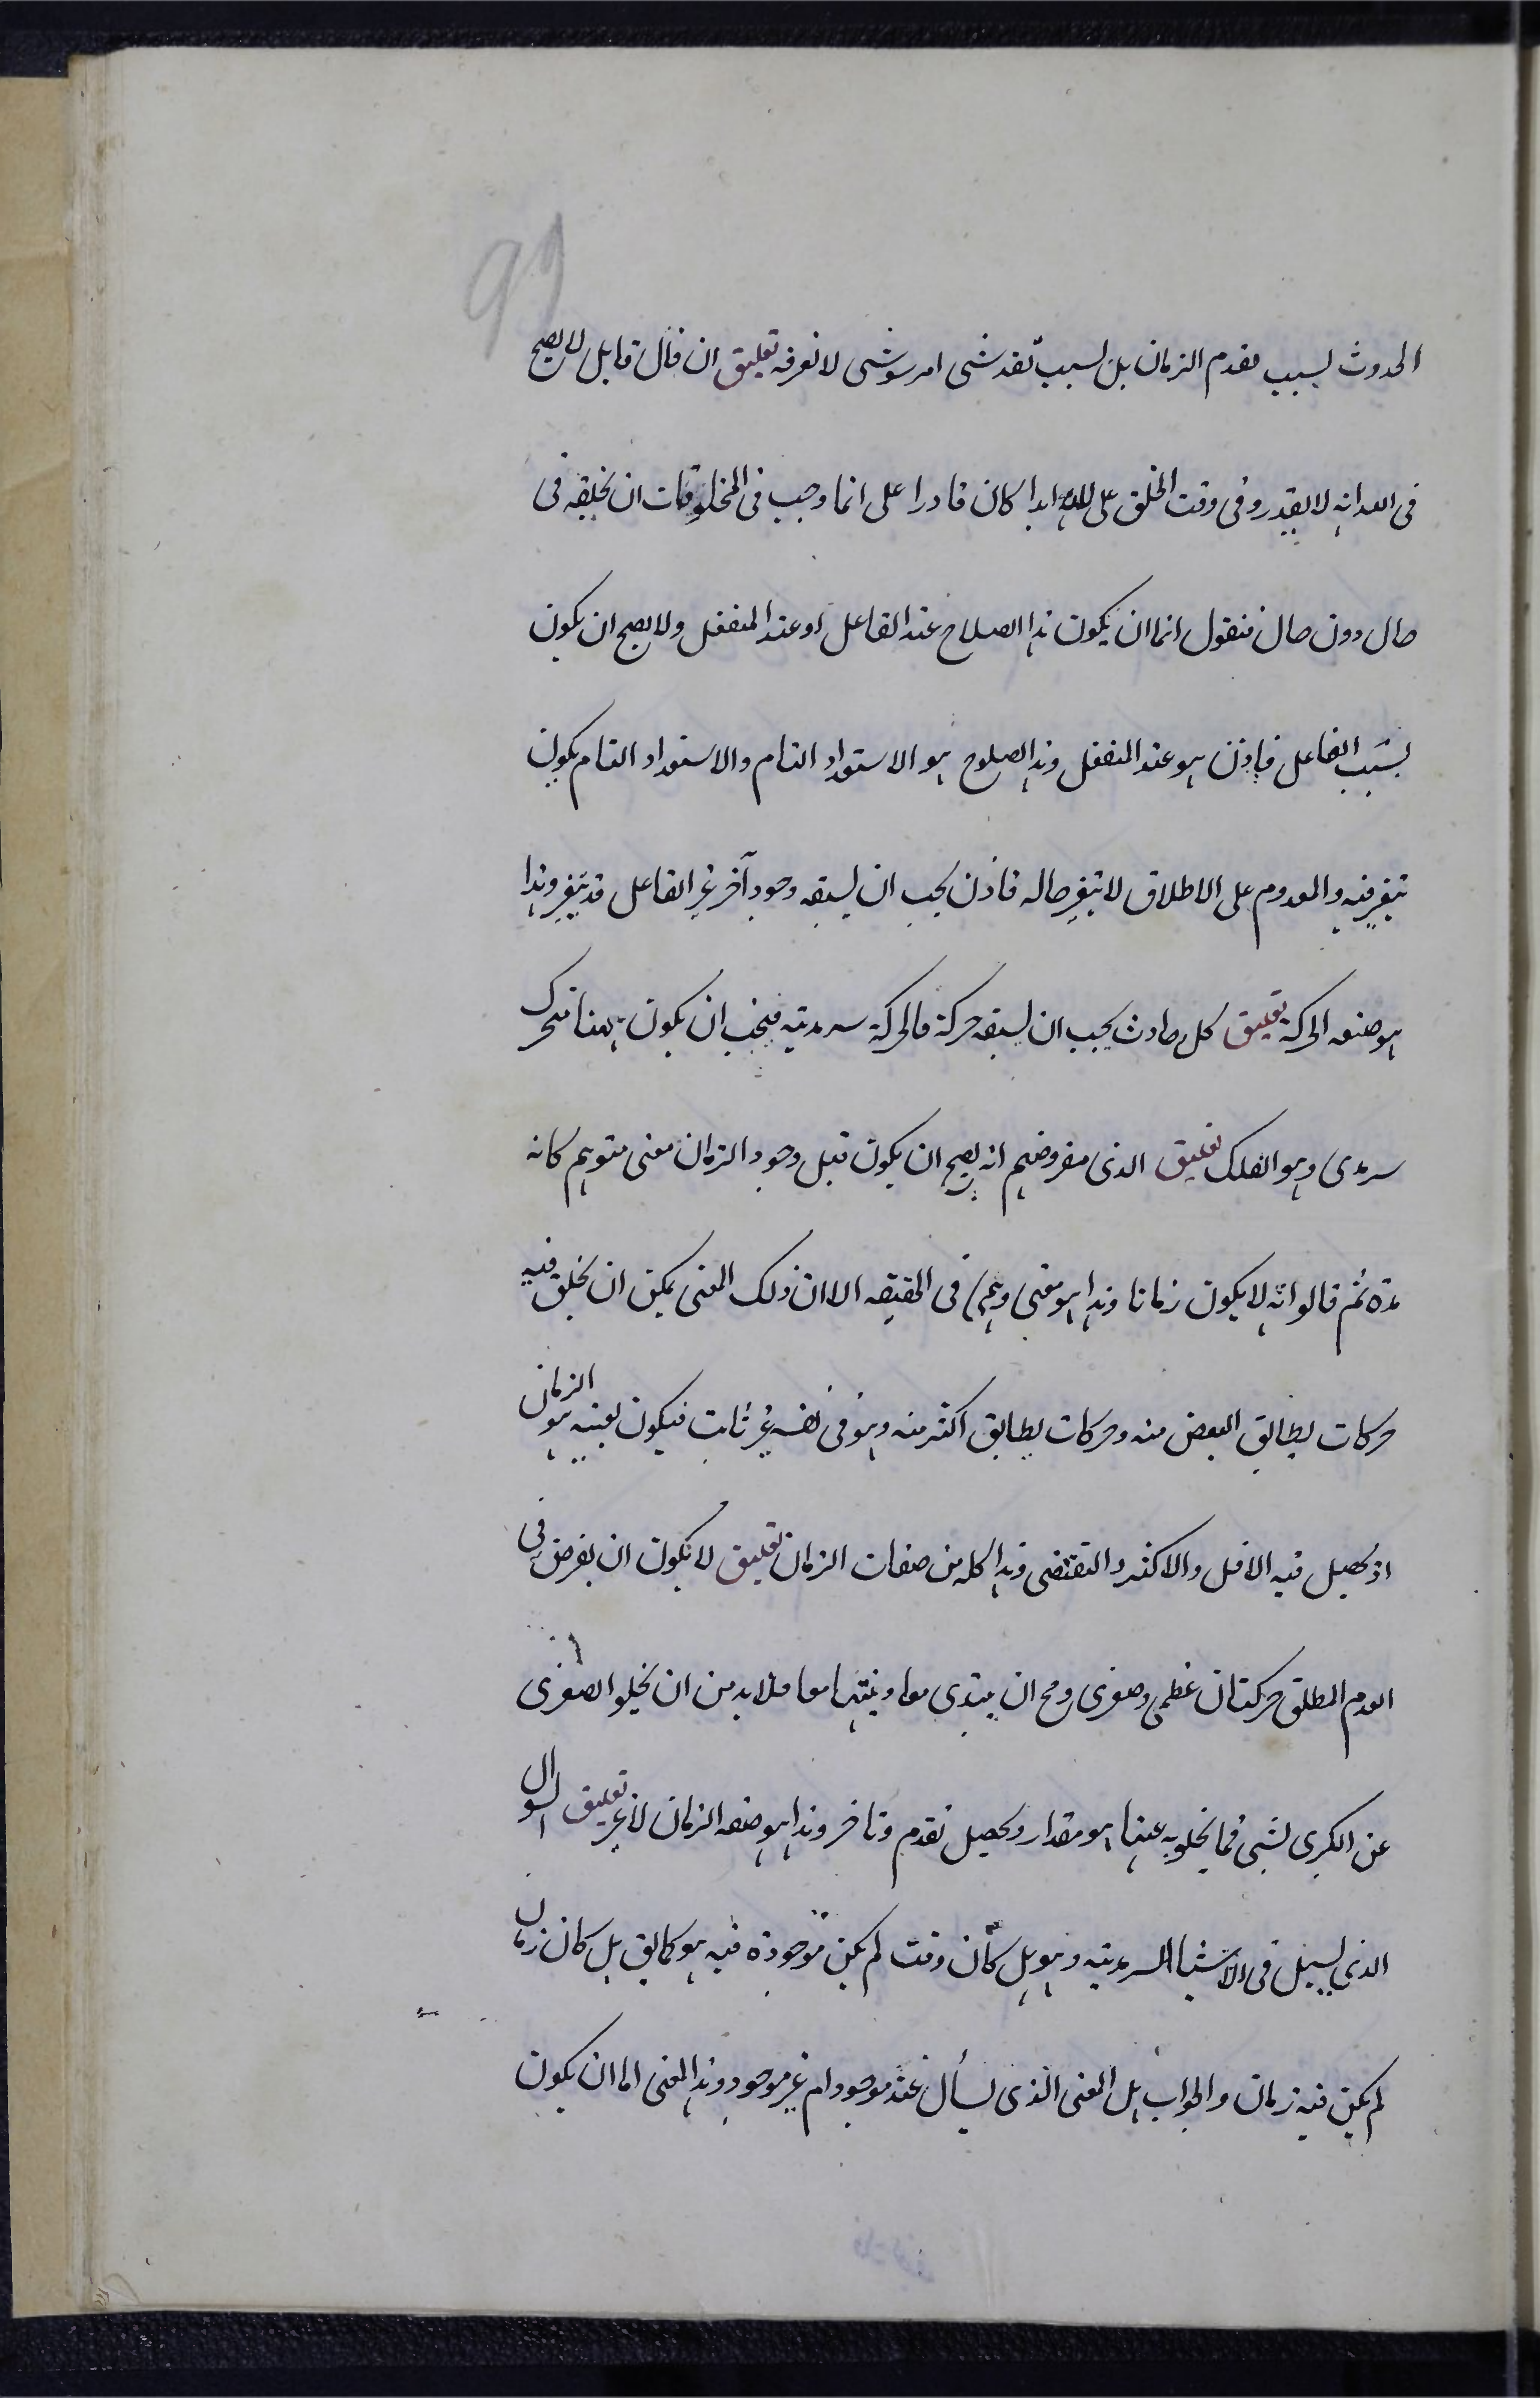 99
الحدوث لسبب تقدم الزمان بل لسبب تقدشى امر سوشى لا نعرفه تعليق ان قال قايل لا يصح
فى الله انه لا يقدر وفى وقت الخلق على الله ابدا كان قادرا على انما وجب فى المخلوقات ان يخلقه فى
حال دون حال فنقول انما ان يكون هذا الصلاح عند الفاعل او عند المنفعل ولا يصح ان يكون
بسبب الفاعل فاذن هو عند المنفعل وهذا الصلوح هو الاستعداد التام والاستعداد التام يكون
بتغير فيه والمعدوم على الاطلاق لا يتغير حاله فاذن يجب ان يسبقه وجود آخر غير الفاعل قد يتغير وهذا
هو صفه الحركة تعليق كل حادث يجب ان يسبقه حركة فالحركة سرمديه فيجب ان يكون ههنا متحرك
سرمدى وهو الفلك تعليق الذى مفروضهم انه يصح ان يكون قبل وجود الزمان معنى متوهم كانه
مدة ثم قالوا انه لا يكون زمانا وهذا هو معنى وهمى فى الحقيقه الا ان ذلك المعنى يمكن ان يخلق فيه
حركات يطابق البعض منه وحركات يطابق اكثر منه وهو فى نفسه غير ثابت فيكون بعينه هو الزمان
اذ يحصل فيه الاقل والاكثر والتقتضى وهذا كله من صفات الزمان تعليق لا يكون ان يفرض فى
العدم المطلق حركتان عظمى وصغرى ومح ان يبتدى معا وينتهيا معا فلا بد من ان يخلوا الصغرى
عن الكبرى بشى فما يخلو به عنها هو مقدار ويحصل تقدم وتاخر وهذا هو صفه الزمان لا غير تعليق السوال
الذى يسيل فى الاشيا السرمديه وهو هل كان وقت لم يكن موجودة فيه هو كما يق هل كان زمان
لم يكن فيه زمان والجواب هل المعنى الذى يسأل عنه موجود ام غير موجود وهذا المعنى اما ان يكون